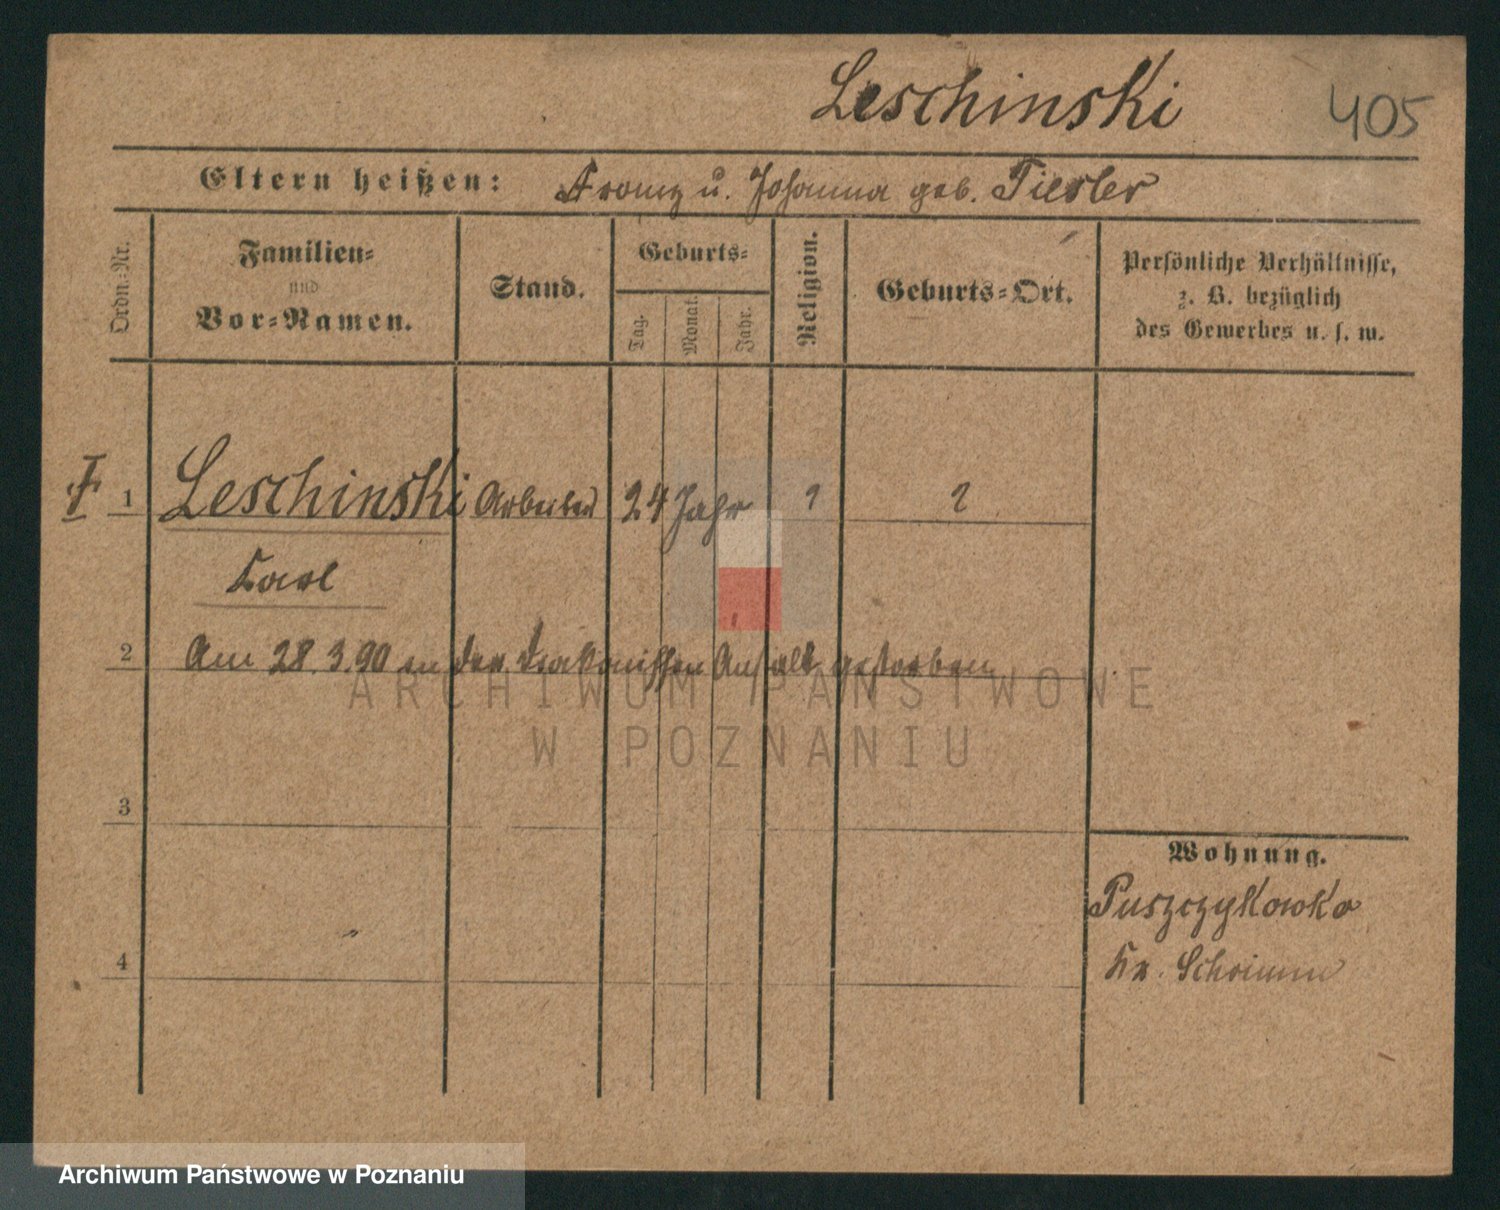 Leschinski
405
Eltern heißen: Franz u. Johanna geb. Tiesler
Ordn.-Nr.
Familien-
und
Vor-Namen.
Stand.
Geburts-
Tag.
Monat.
Jahr.
Religion.
Geburts-Ort.
Persönliche Verhältnisse,
z. B. bezüglich
des Gewerbes u. s. w.
1 Leschinski Arbeiter 24 Jahr ? ?
Karl
2 Am 28.3.90 in der Diakonissen Anstalt gestorben
ARCHIWUM PAŃSTWOWE
W POZNANIU
3
Wohnung.
Puszczykowko
4
Kr. Schrimm
Archiwum Państwowe w Poznaniu